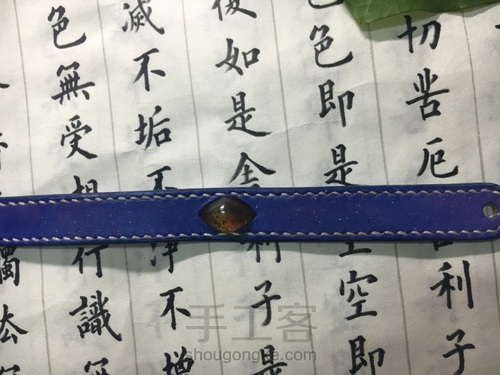 切苦厄利子
色即是空空即
復如是舍利子是
滅不垢不淨不增
色無受想行識無
手工客
shougongke.com